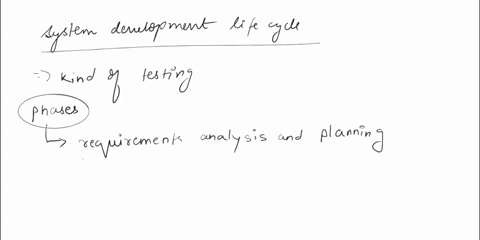 system development life cycle
=> kind of testing
phases
↳ requirements analysis and planning